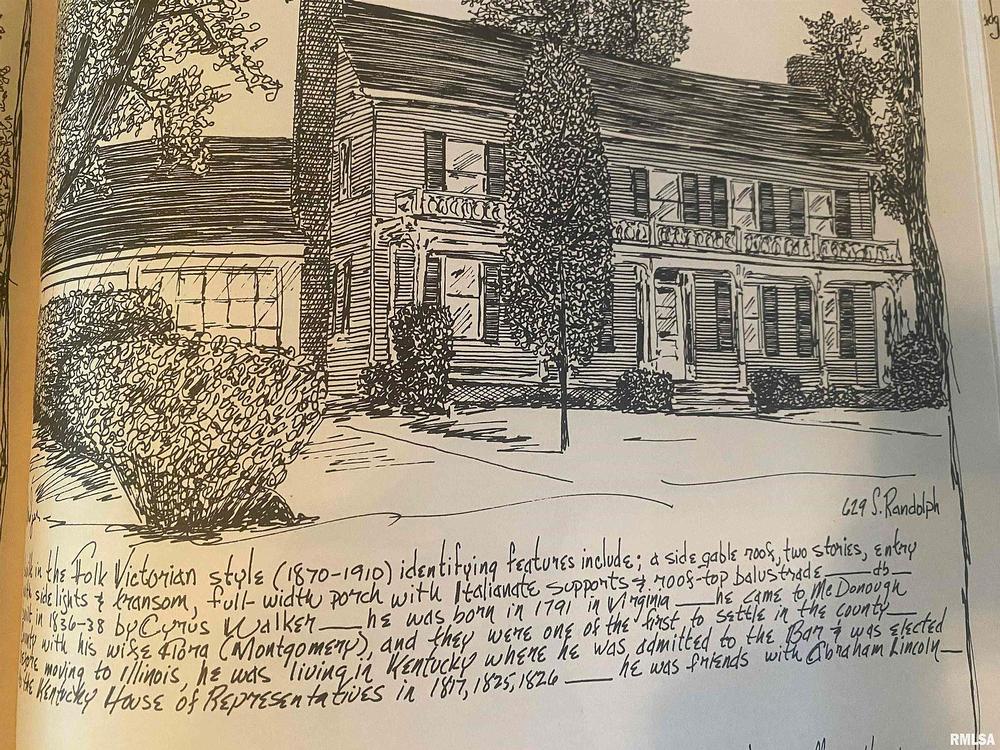 629 S. Randolph
in the Folk Victorian style (1870-1910) identifying features include; a side gable roof, two stories, entry
sidelights & transom, full-width porch with Italianate supports & roof-top balustrade — db —
in 1836-38 by Cyrus Walker — he was born in 1791 in Virginia — he came to McDonough
with his wife Flora (Montgomery), and they were one of the first to settle in the county —
moving to Illinois, he was living in Kentucky where he was admitted to the Bar & was elected
Kentucky House of Representatives in 1817, 1825, 1826 — he was friends with Abraham Lincoln —
RMLSA